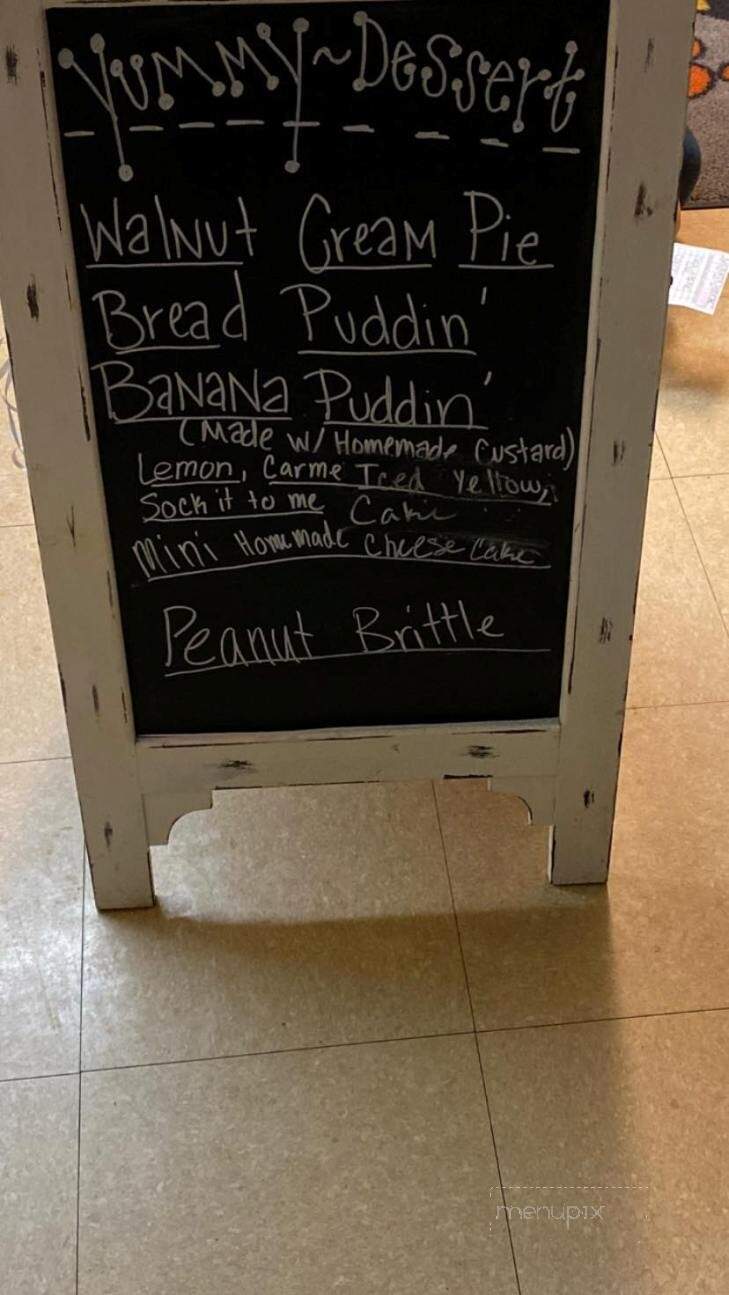 Yummy~Dessert
Walnut Cream Pie
Bread Puddin'
Banana Puddin'
(Made w/ Homemade Custard)
Lemon, Carme Iced Yellow,
Sock it to me Cake
Mini Homemade Cheese Cake
Peanut Brittle
menupix